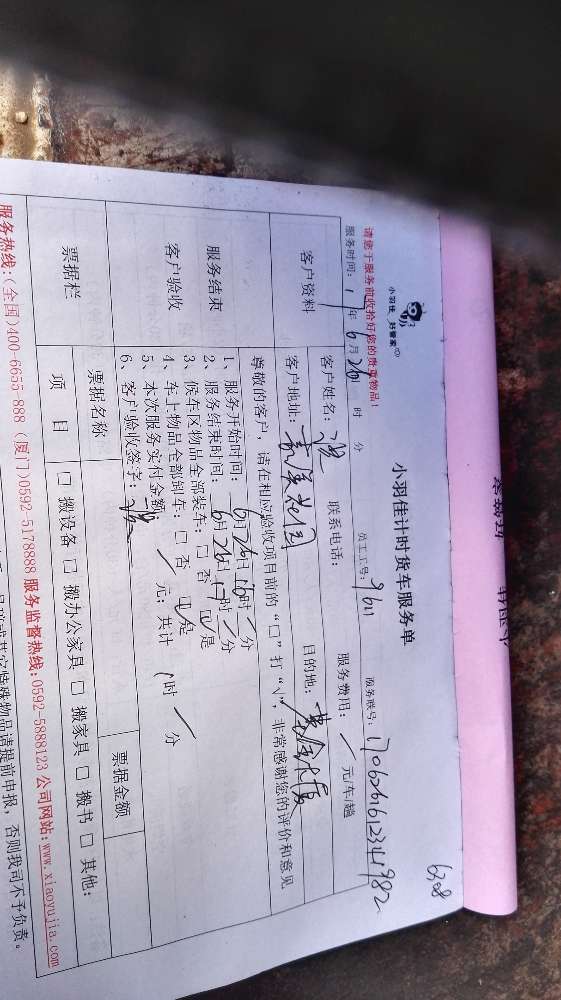 6308
小羽佳 好管家
小羽佳计时货车服务单
请您于服务前收拾好您的贵重物品!
服务时间: 17年6月26日 时 分 员工工号: 9611 服务账号: 170626161234982
客户资料 客户姓名: 联系电话: 服务费用: / 元/车/趟
客户地址: 花园 目的地: 黄金大厦
尊敬的客户,请在相应验收项目前的“□”打“√”,非常感谢您的评价和意见
服务结束
客户验收
1、服务开始时间: 6月26日16时/分
2、服务结束时间: 6月26日17时/分
3、候车区物品全部装车: □否 ☑是
4、车上物品全部卸车: □否 ☑是
5、本次服务实付金额: / 元; 共计 1时 / 分
6、客户验收签字:
票据栏 票据名称 票据金额
项 目 □ 搬设备 □ 搬办公家具 □ 搬家具 □ 搬书 □ 其他:
服务热线:(全国)400-6655-888 (厦门)0592-5178888 服务监督热线:0592-5888123 公司网站:www.xiaoyujia.com
特殊物品请提前申报,否则我司不予负责。